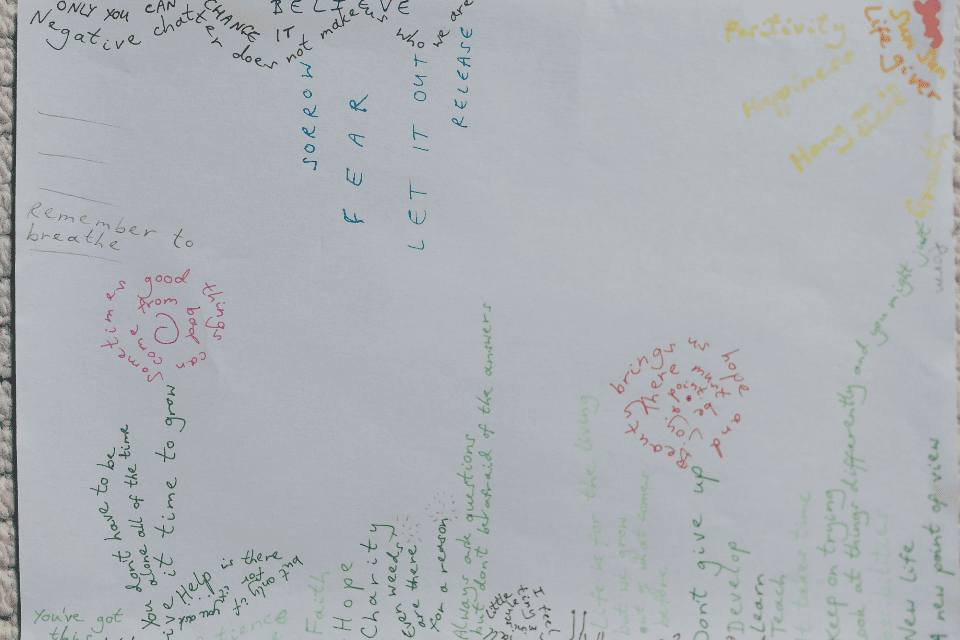 ONLY YOU CAN CHANGE IT
BELIEVE
Negative chatter does not make us who we are
SORROW
FEAR
LET IT OUT
RELEASE
Positivity
Happiness
Hang on to
Sun Sun
Life giver
Growth
Remember to
breathe
sometimes good things can
come from bad
brings us hope and Beauty
There must be
point
You don't have to be
alone all of the time
ive it time to grow
Help is there
but only if you ask
You've got
Faith
Hope
Charity
Even weeds
are there
For a reason
Always ask questions
but don't be afraid of the answers
Life is for the living
but we grow
out of what comes
before
Don't give up
Develop
Learn
Teach
Keep on trying
Look at things differently and you might just
New life
A new point of view